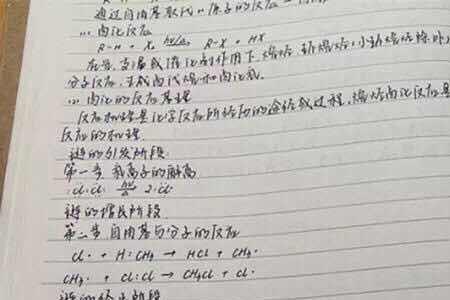 通过自由基取代……原子的反应
(1) 卤化反应
R-H + X₂ hv/△ R-X + HX
在光、高温或催化剂作用下,烷烃、环烷烃(小环烷烃除外)
分子反应,生成卤代烃和卤化氢。
(2) 卤化的反应机理
反应机理是化学反应所经历的途径或过程,烷烃卤化反应是
反应的机理
链的引发阶段
第一步 氯分子的解离
:Cl:Cl: hv/△ 2:Cl·
链的增长阶段
第二步 自由基与分子的反应
Cl· + H:CH₃ → HCl + CH₃·
CH₃· + Cl:Cl → CH₃Cl + Cl·
链的终止阶段